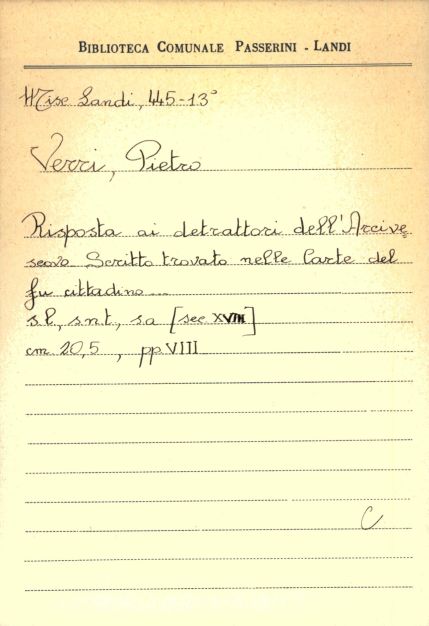 BIBLIOTECA COMUNALE PASSERINI - LANDI
Misc Landi, 445-13°
Verri, Pietro
Risposta ai detrattori dell'Arcive
scovo. Scritto trovato nelle Carte del
fu cittadino...
s.l., s.n.t., s.a [sec XVIII]
cm 20,5, pp VIII
C